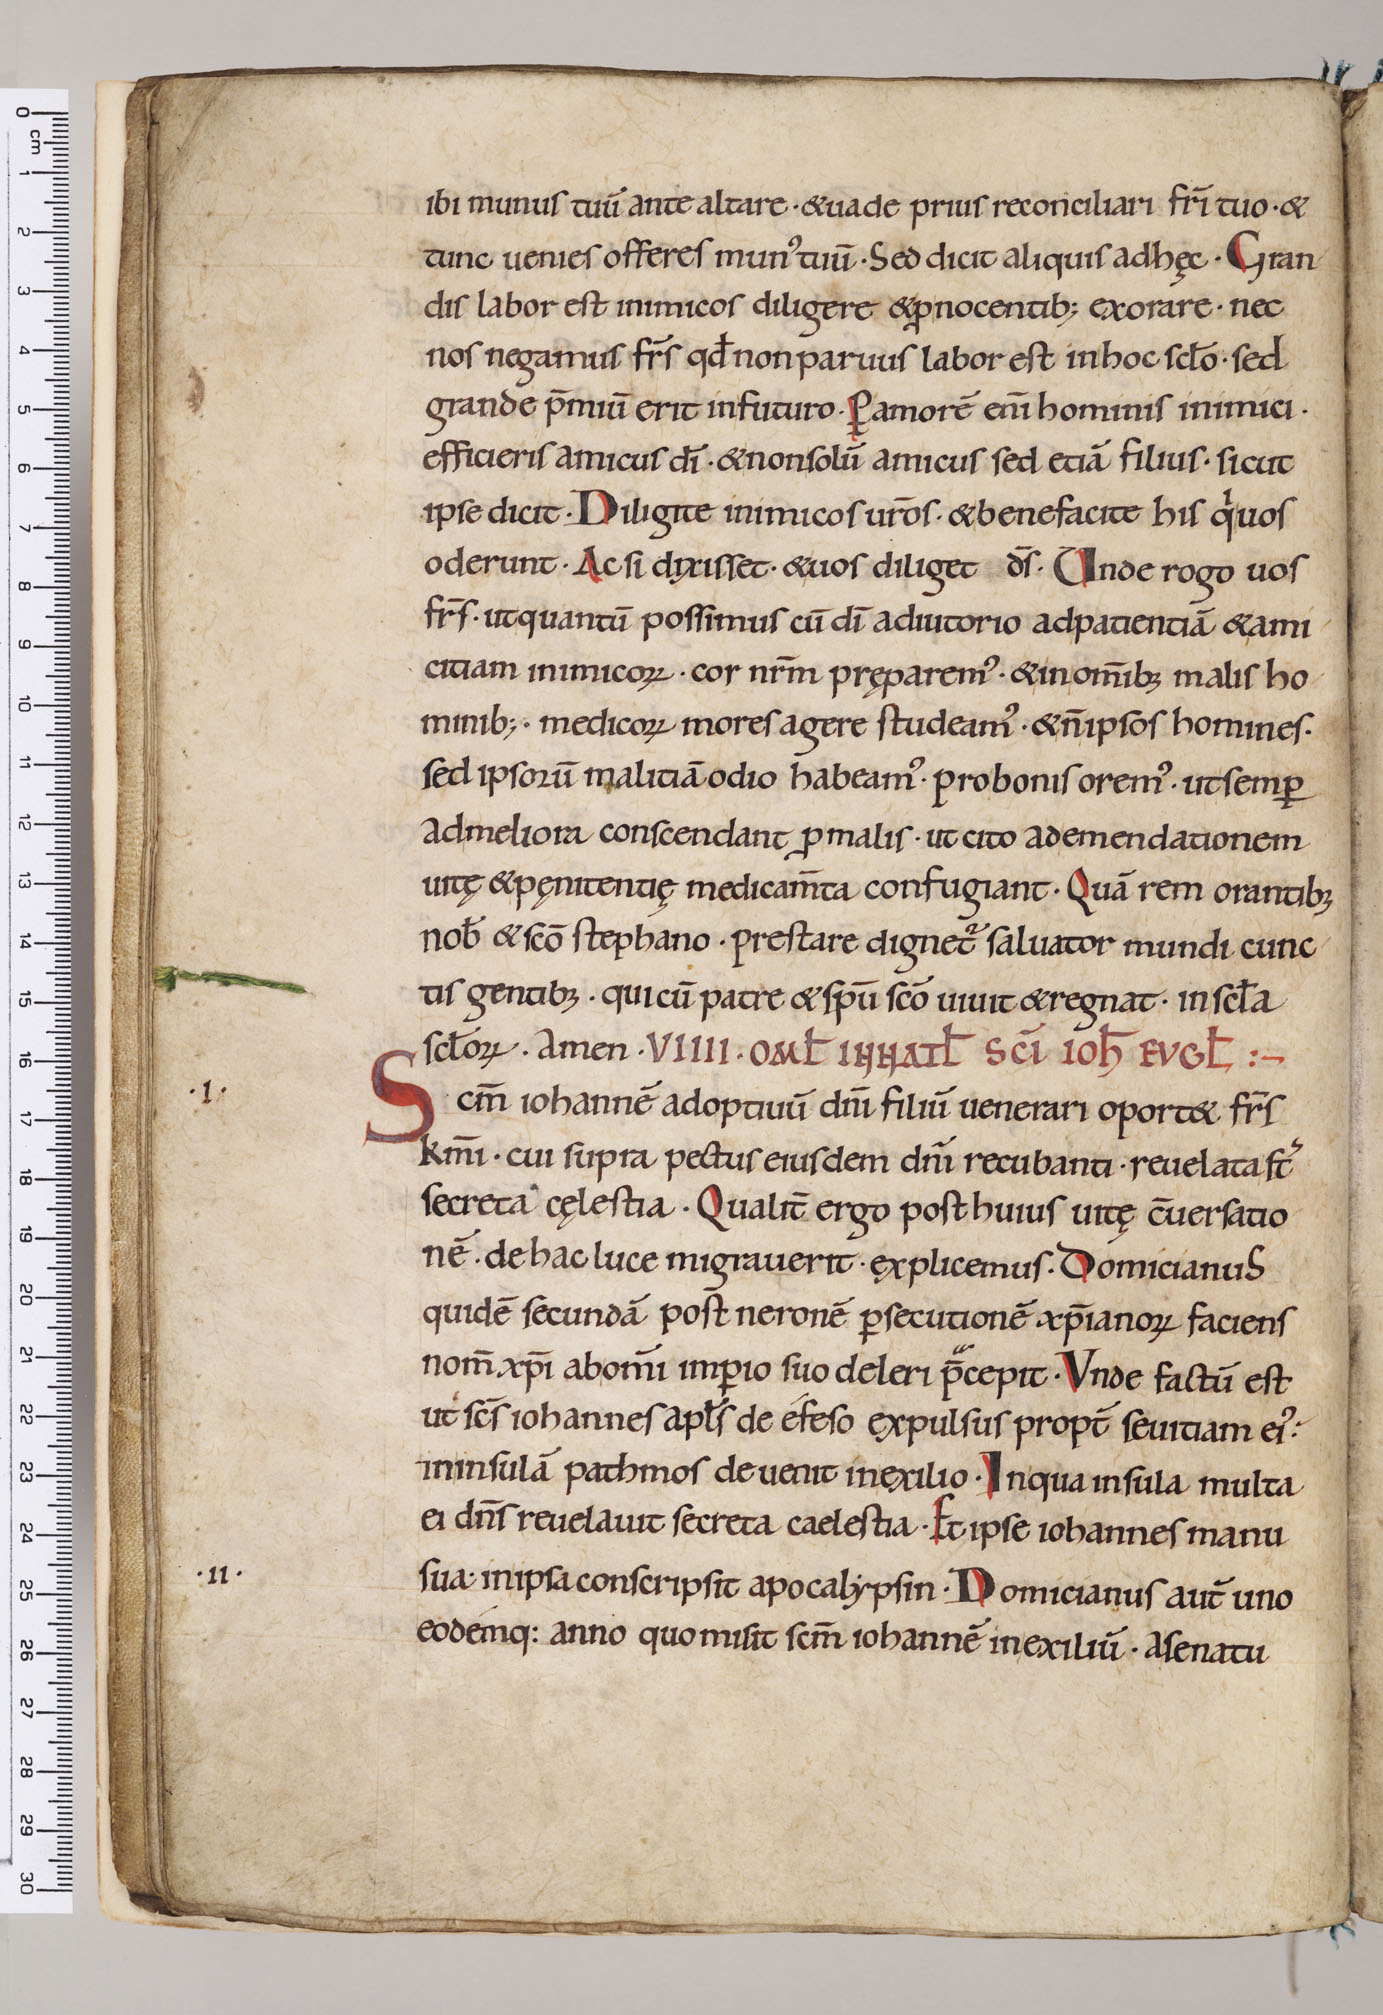 ibi munus tuū ante altare · & uade prius reconciliari fr̄i tuo · &
tunc uenies offeres mun᾿ tuū · Sed dicit aliquis ad hęc · Gran
dis labor est inimicos diligere & ꝓ nocentib; exorare · nec
nos negamus fr̄s qđ non paruus labor est in hoc scło · sed
grande p̄miū erit in futuro · Ꝑ amorē eni̅ hominis inimici ·
efficieris amicus dī · & non solū amicus sed etiā filius · sicut
ipse dicit · Diligite inimicos ur̄os · & benefacite his qͥ uos
oderunt · Ac si dixisset · & uos diliget d̄s · Unde rogo uos
fr̄s · ut quantū possimus cū dī adiutorio ad patientiā & ami
citiam inimicoꝝ · cor nr̄m pręparem᾿ · & in om̄ibꝫ malis ho
minib; · medicoꝝ mores agere studeam᾿ · & n̄ ipsos homines ·
sed ipsorū malitiā odio habeam᾿ · pro bonis orem᾿ · ut semꝑ
ad meliora conscendant ꝓ malis · ut cito ad emendationem
uitę & pęnitentię medicam̄ta confugiant · Quā rem orantibꝫ
nob̄ & scō stephano · prestare dignet᾿ saluator mundi cunc
tis gentibꝫ · qui cū patre & spū scō uiuit & regnat · in scła
scłoꝝ · Amen · VIIII · OMƚ IN NATƚ SC̄I IOH̄ EVGƚ :¬
· I ·
Scm̄ iohannē adoptiuū dn̄i filiū uenerari oport& fr̄s
km̄i · cui supra pectus eiusdem dn̄i recubanti · reuelata st᾿
secreta cęlestia · Qualit̄ ergo post huius uitę c̄uersatio
nē · de hac luce migrauerit · explicemus · Domicianus
quidē secundā post neronē ꝑsecutionē xp̄ianoꝝ faciens
nom̄ xp̄i ab om̄i imꝑio suo deleri p̄cepit · Vnde factū est
ut scs̄ iohannes apƚs de efeso expulsus propt̄ seuitiam ei᾿ ·
in insulā pathmos deuenit in exilio · In qua insula multa
ei dn̄s reuelauit secreta caelestia · Et ipse iohannes manu
· II ·
sua · in ipsa conscripsit apocalypsin · Domicianus aut̄ uno
eodemq: anno quo misit scm̄ iohannē in exiliū · a senatu